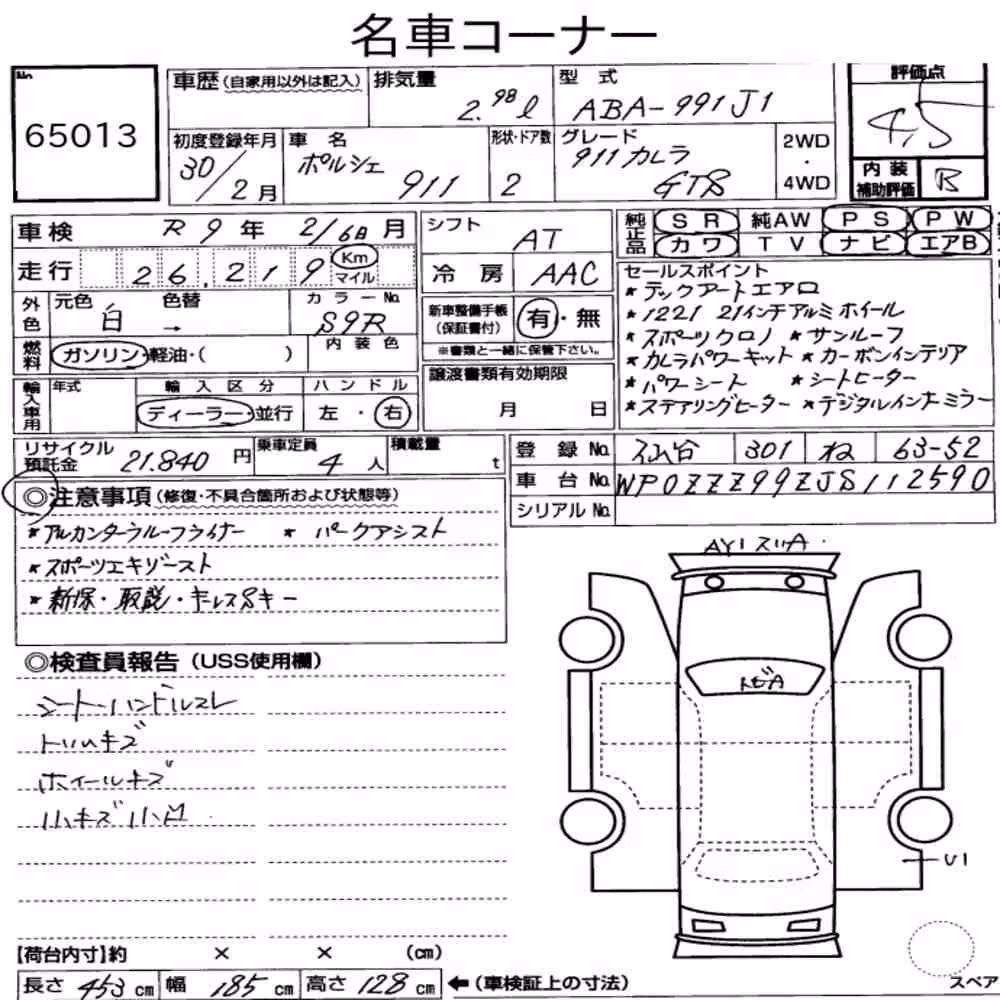 名車コーナー
No. 65013
車歴(自家用以外は記入) 排気量 2.98ℓ 型式 ABA-991J1 評価点 4.5
初度登録年月 30/2月 車名 ポルシェ 911 形状・ドア数 2 グレード 911カレラ GTS 2WD・4WD 内装補助評価 B
車検 R9年 2/16日月 シフト AT 純正品 SR 純AW PS PW
走行 26,219 Km マイル 冷房 AAC カワ TV ナビ エアB
外色 元色 白 色替 → カラーNo. S9R 新車整備手帳(保証書付) 有・無
燃料 ガソリン・軽油・( ) 内装色 ※書類と一緒に保管下さい。
輸入車用 年式 輸入区分 ディーラー・並行 ハンドル 左・右 譲渡書類有効期限 月 日
セールスポイント
*テックアートエアロ
*1221 21インチアルミホイール
*スポーツクロノ *サンルーフ
*カレラパワーキット *カーボンインテリア
*パワーシート *シートヒーター
*ステアリングヒーター *デジタルインナーミラー
リサイクル預託金 21.840円 乗車定員 4人 積載量 t
登録No. 301 ね 63-52
車台No. WP0ZZZ99ZJS112590
シリアルNo.
◎注意事項(修復・不具合箇所および状態等)
*アルカンターラルーフライナー *パークアシスト
*スポーツエキゾースト
*新保・取説・キーレスSキー
◎検査員報告(USS使用欄)
シート・ハンドルスレ
トリムキズ
ホイールキズ
小キズ小凹
AY1 スリA
トビA
U1
【荷台内寸】約 × × (cm)
長さ 453cm 幅 185cm 高さ 128cm ←(車検証上の寸法)
スペア